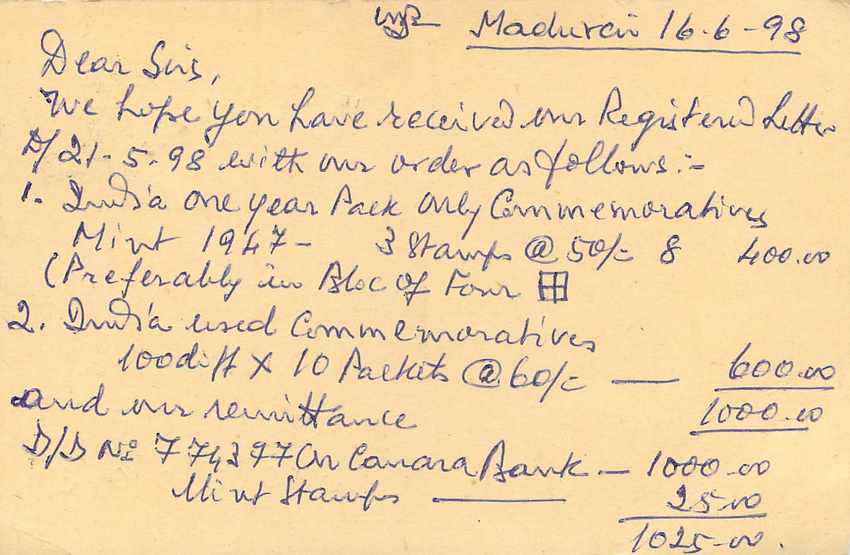 Madurai 16-6-98
Dear Sirs,
We hope you have received our Registered Letter
D/21-5-98 with our order as follows:-
1. India one year Pack only Commemoratives
Mint 1947- 3 Stamps @ 50/= 8 400.00
(Preferably in Bloc of Four
2. India used Commemoratives
100 diff X 10 Packets @ 60/= — 600.00
and our remittance 1000.00
D/D No 774397 On Canara Bank — 1000.00
Mint Stamps — 25.00
1025.00.